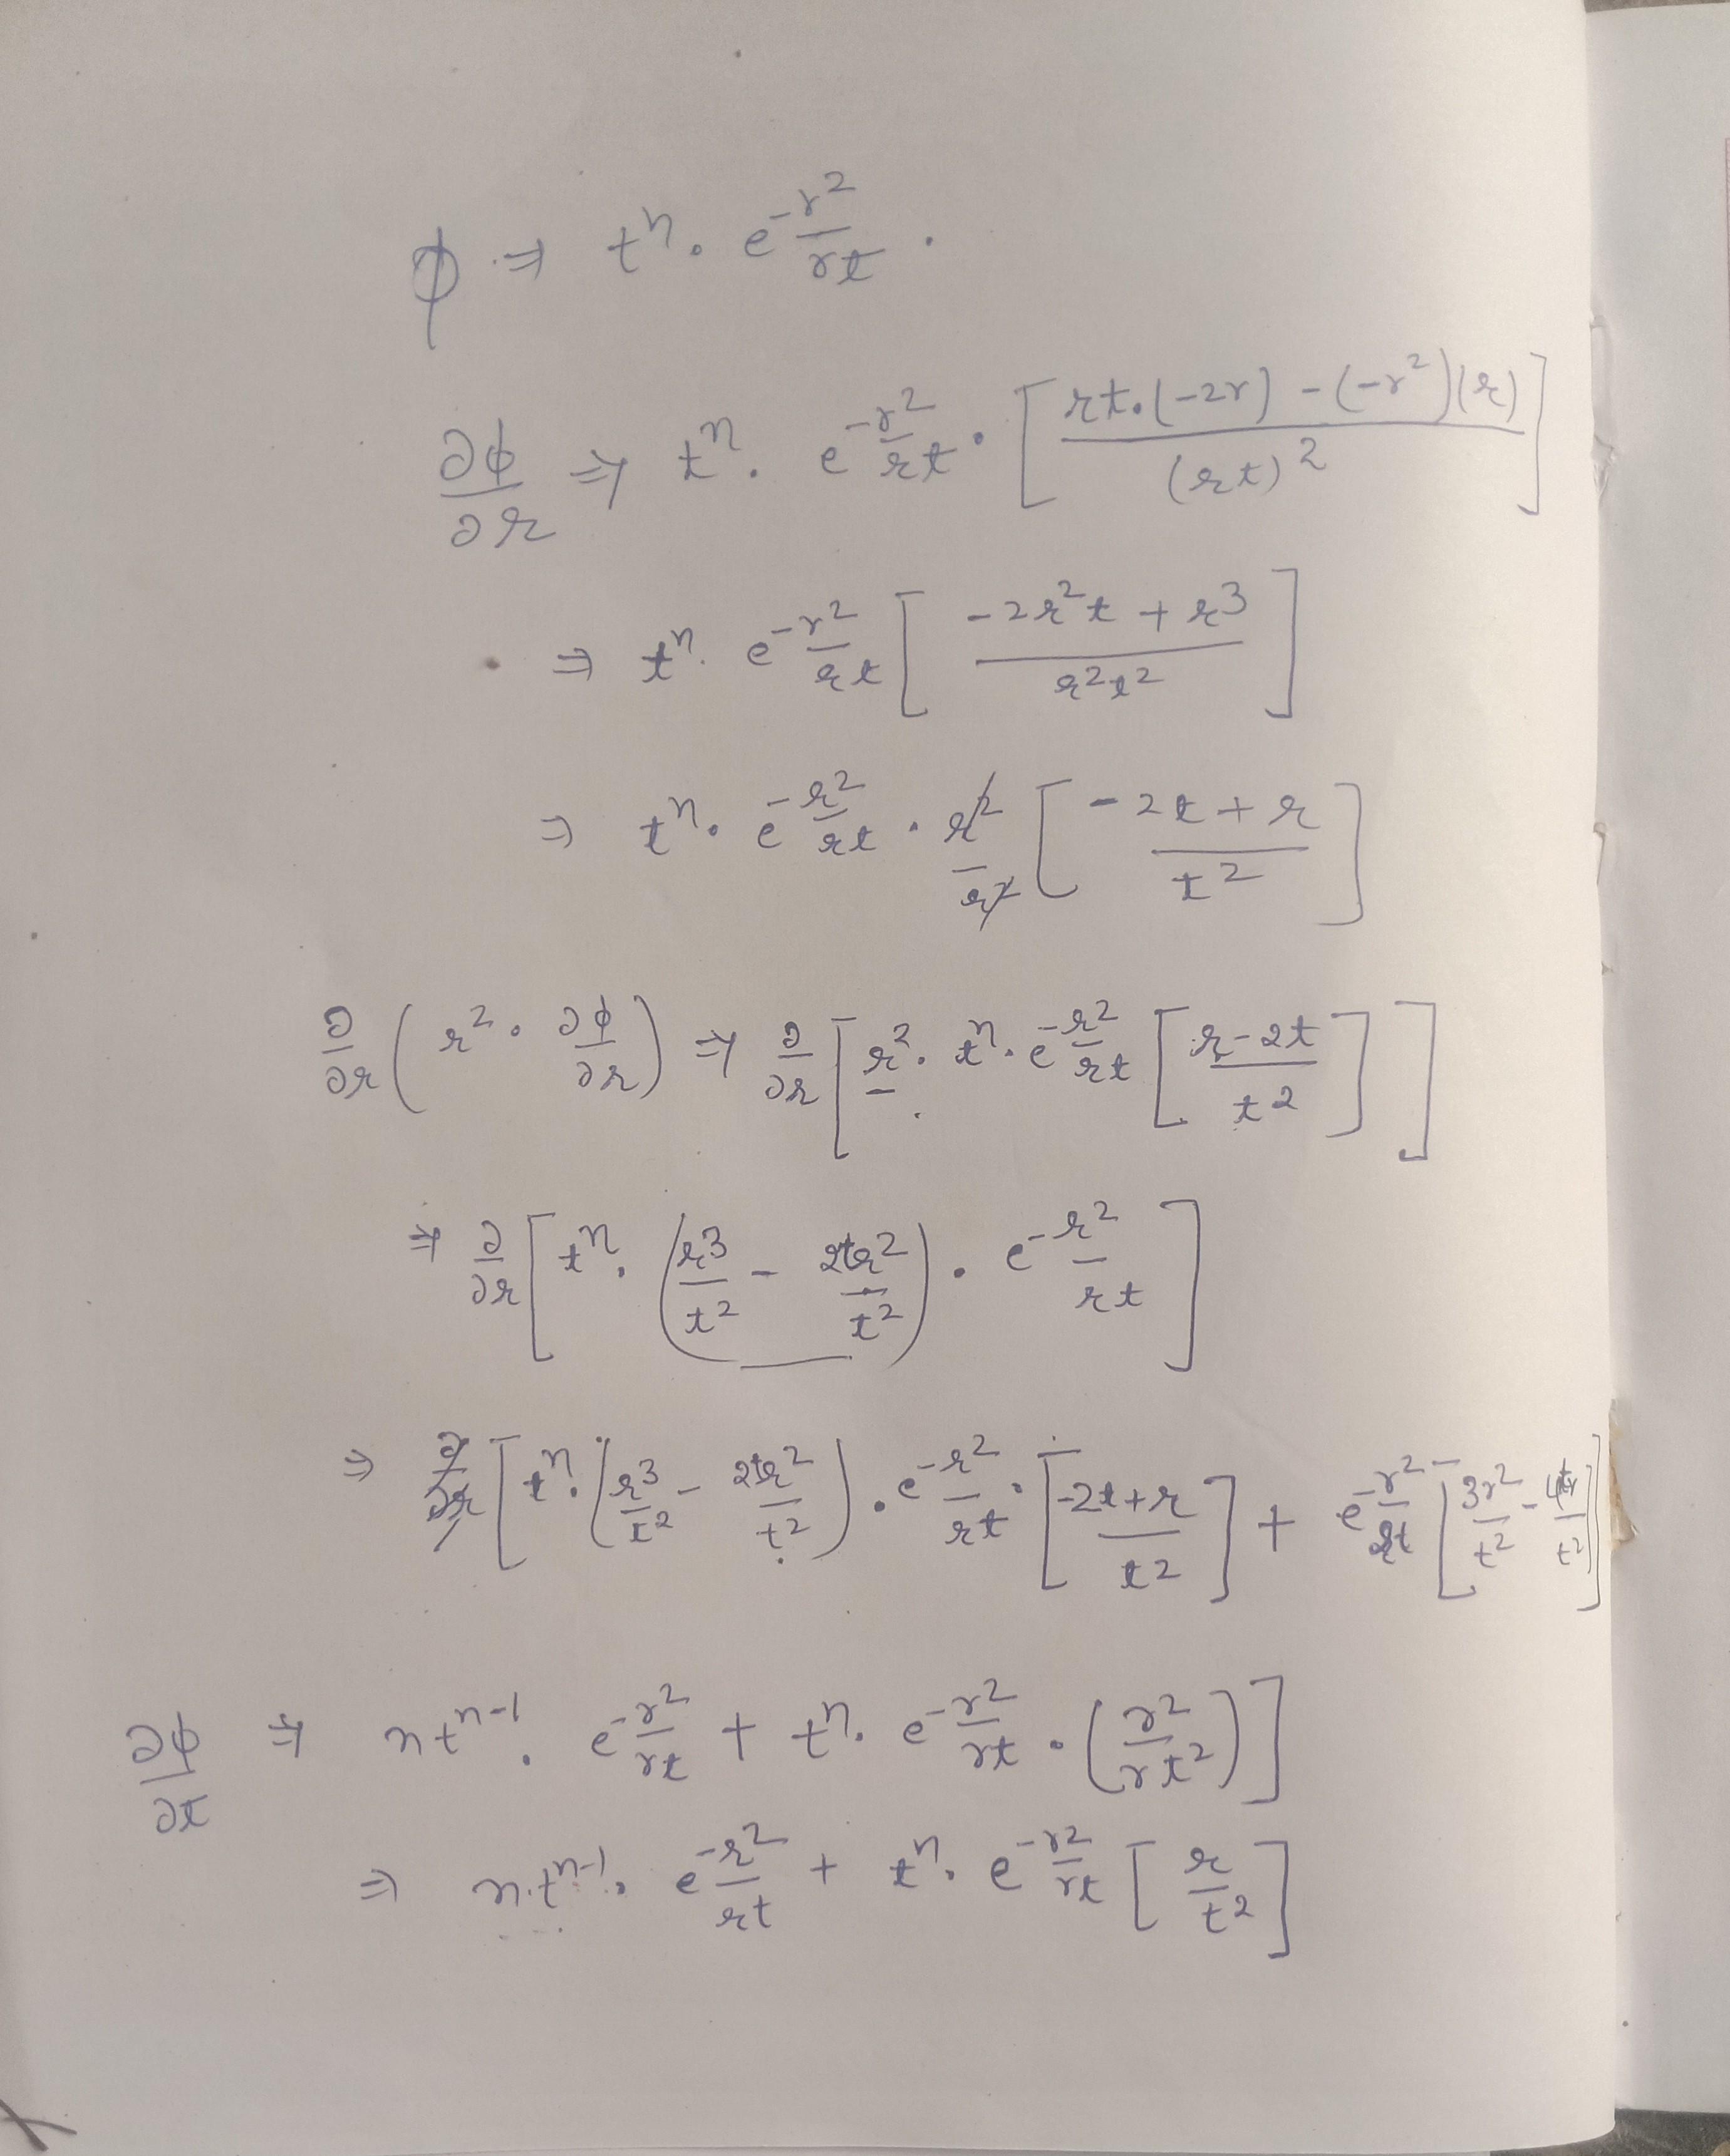 ϕ ⇒ t^n. e^{-r^2/rt}.
∂ϕ/∂r ⇒ t^n. e^{-r^2/rt}. [ (rt.(-2r) - (-r^2)(r)) / (rt)^2 ]
⇒ t^n. e^{-r^2/rt} [ (-2r^2t + r^3) / r^2t^2 ]
⇒ t^n. e^{-r^2/rt} . r^2/r^2 [ (-2t + r) / t^2 ]
∂/∂r ( r^2. ∂ϕ/∂r ) ⇒ ∂/∂r [ r^2. t^n. e^{-r^2/rt} [ (r-2t) / t^2 ] ]
⇒ ∂/∂r [ t^n. ( r^3/t^2 - 2tr^2/t^2 ) . e^{-r^2/rt} ]
⇒ ∂/∂r [ t^n. ( r^3/t^2 - 2tr^2/t^2 ) . e^{-r^2/rt} . [ (-2t+r) / t^2 ] + e^{-r^2/rt} [ 3r^2/t^2 - 4tr/t^2 ] ]
∂ϕ/∂t ⇒ nt^{n-1}. e^{-r^2/rt} + t^n. e^{-r^2/rt} . ( r^2/rt^2 ) ]
⇒ n.t^{n-1}. e^{-r^2/rt} + t^n. e^{-r^2/rt} [ r/t^2 ]